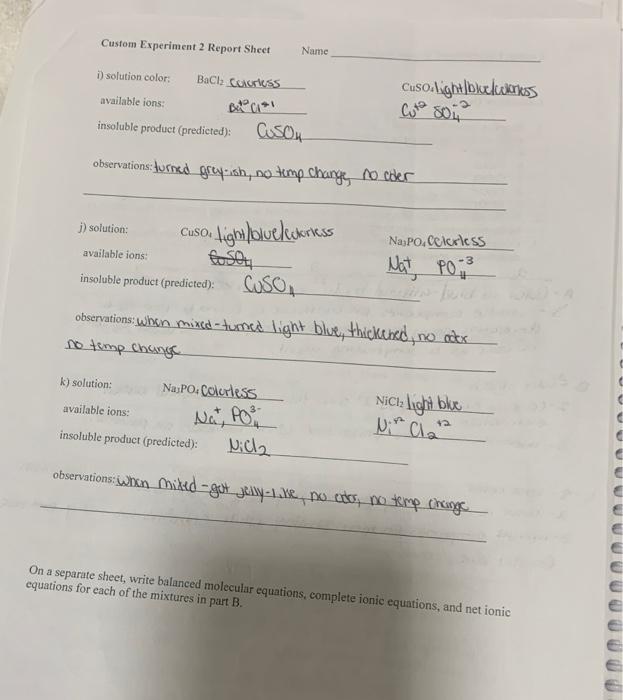 Custom Experiment 2 Report Sheet Name
i) solution color: BaCl₂ colorless CuSO₄ light/blue/colorless
available ions: Ba⁺² Cl⁻¹ Cu⁺² SO₄⁻²
insoluble product (predicted): CuSO₄
observations: turned grey-ish, no temp change, no oder
j) solution: CuSO₄ light/blue/colorless Na₃PO₄ colorless
available ions: CuSO₄ Na⁺, PO₄⁻³
insoluble product (predicted): CuSO₄
observations: when mixed - turned light blue, thickened, no odor
no temp change
k) solution: Na₃PO₄ colorless NiCl₂ light blue
available ions: Na⁺, PO₄³⁻ Ni⁺² Cl₂⁺²
insoluble product (predicted): NiCl₂
observations: when mixed - got jelly-like, no odor, no temp change
On a separate sheet, write balanced molecular equations, complete ionic equations, and net ionic
equations for each of the mixtures in part B.